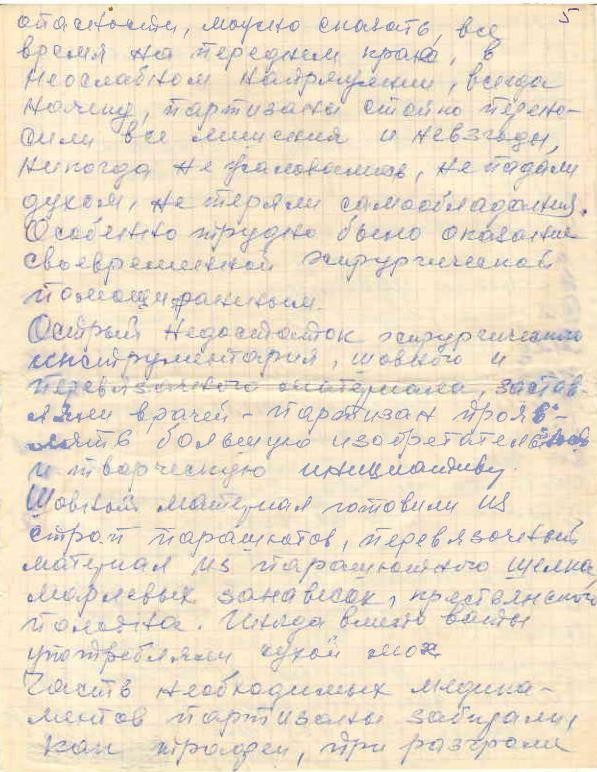 5
опасности, можно сказать, все
время на переднем крае, в
неослабном напряжении, всегда
начеку, партизаны стойко перено-
сили все лишения и невзгоды,
никогда не жаловались, не падали
духом, не теряли самообладания.
Особенно трудно было оказание
своевременной хирургической
помощи раненым.
Острый недостаток хирургического
инструментария, шовного и
перевязочного материала, застав
ляли врачей - партизан прояв-
лять большую изобретательность
и творческую инициативу.
Шовный материал готовили из
строп парашютов, перевязочный
материал из парашютного шелка,
марлевых занавесок, крестьянского
полотна. Иногда вместо ваты
употребляли сухой мох
Часть необходимых медика-
ментов партизаны забирали,
как трофеи, при разгроме